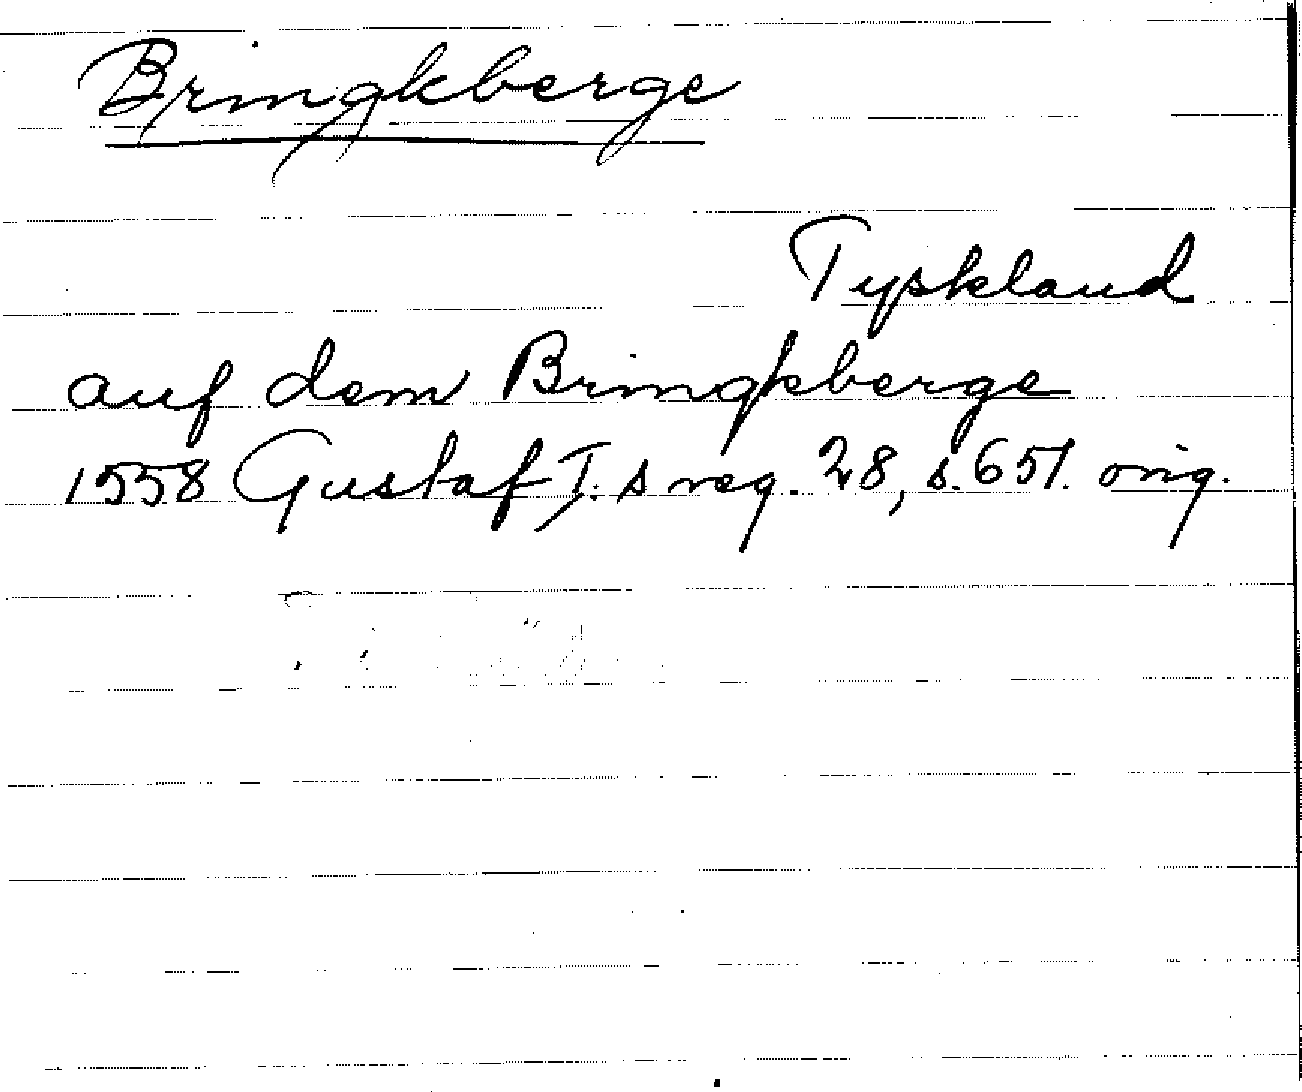 Bringkberge
Tyskland
auf dem Bringkberge
1558 Gustaf I:s reg. 28, s. 651. orig.